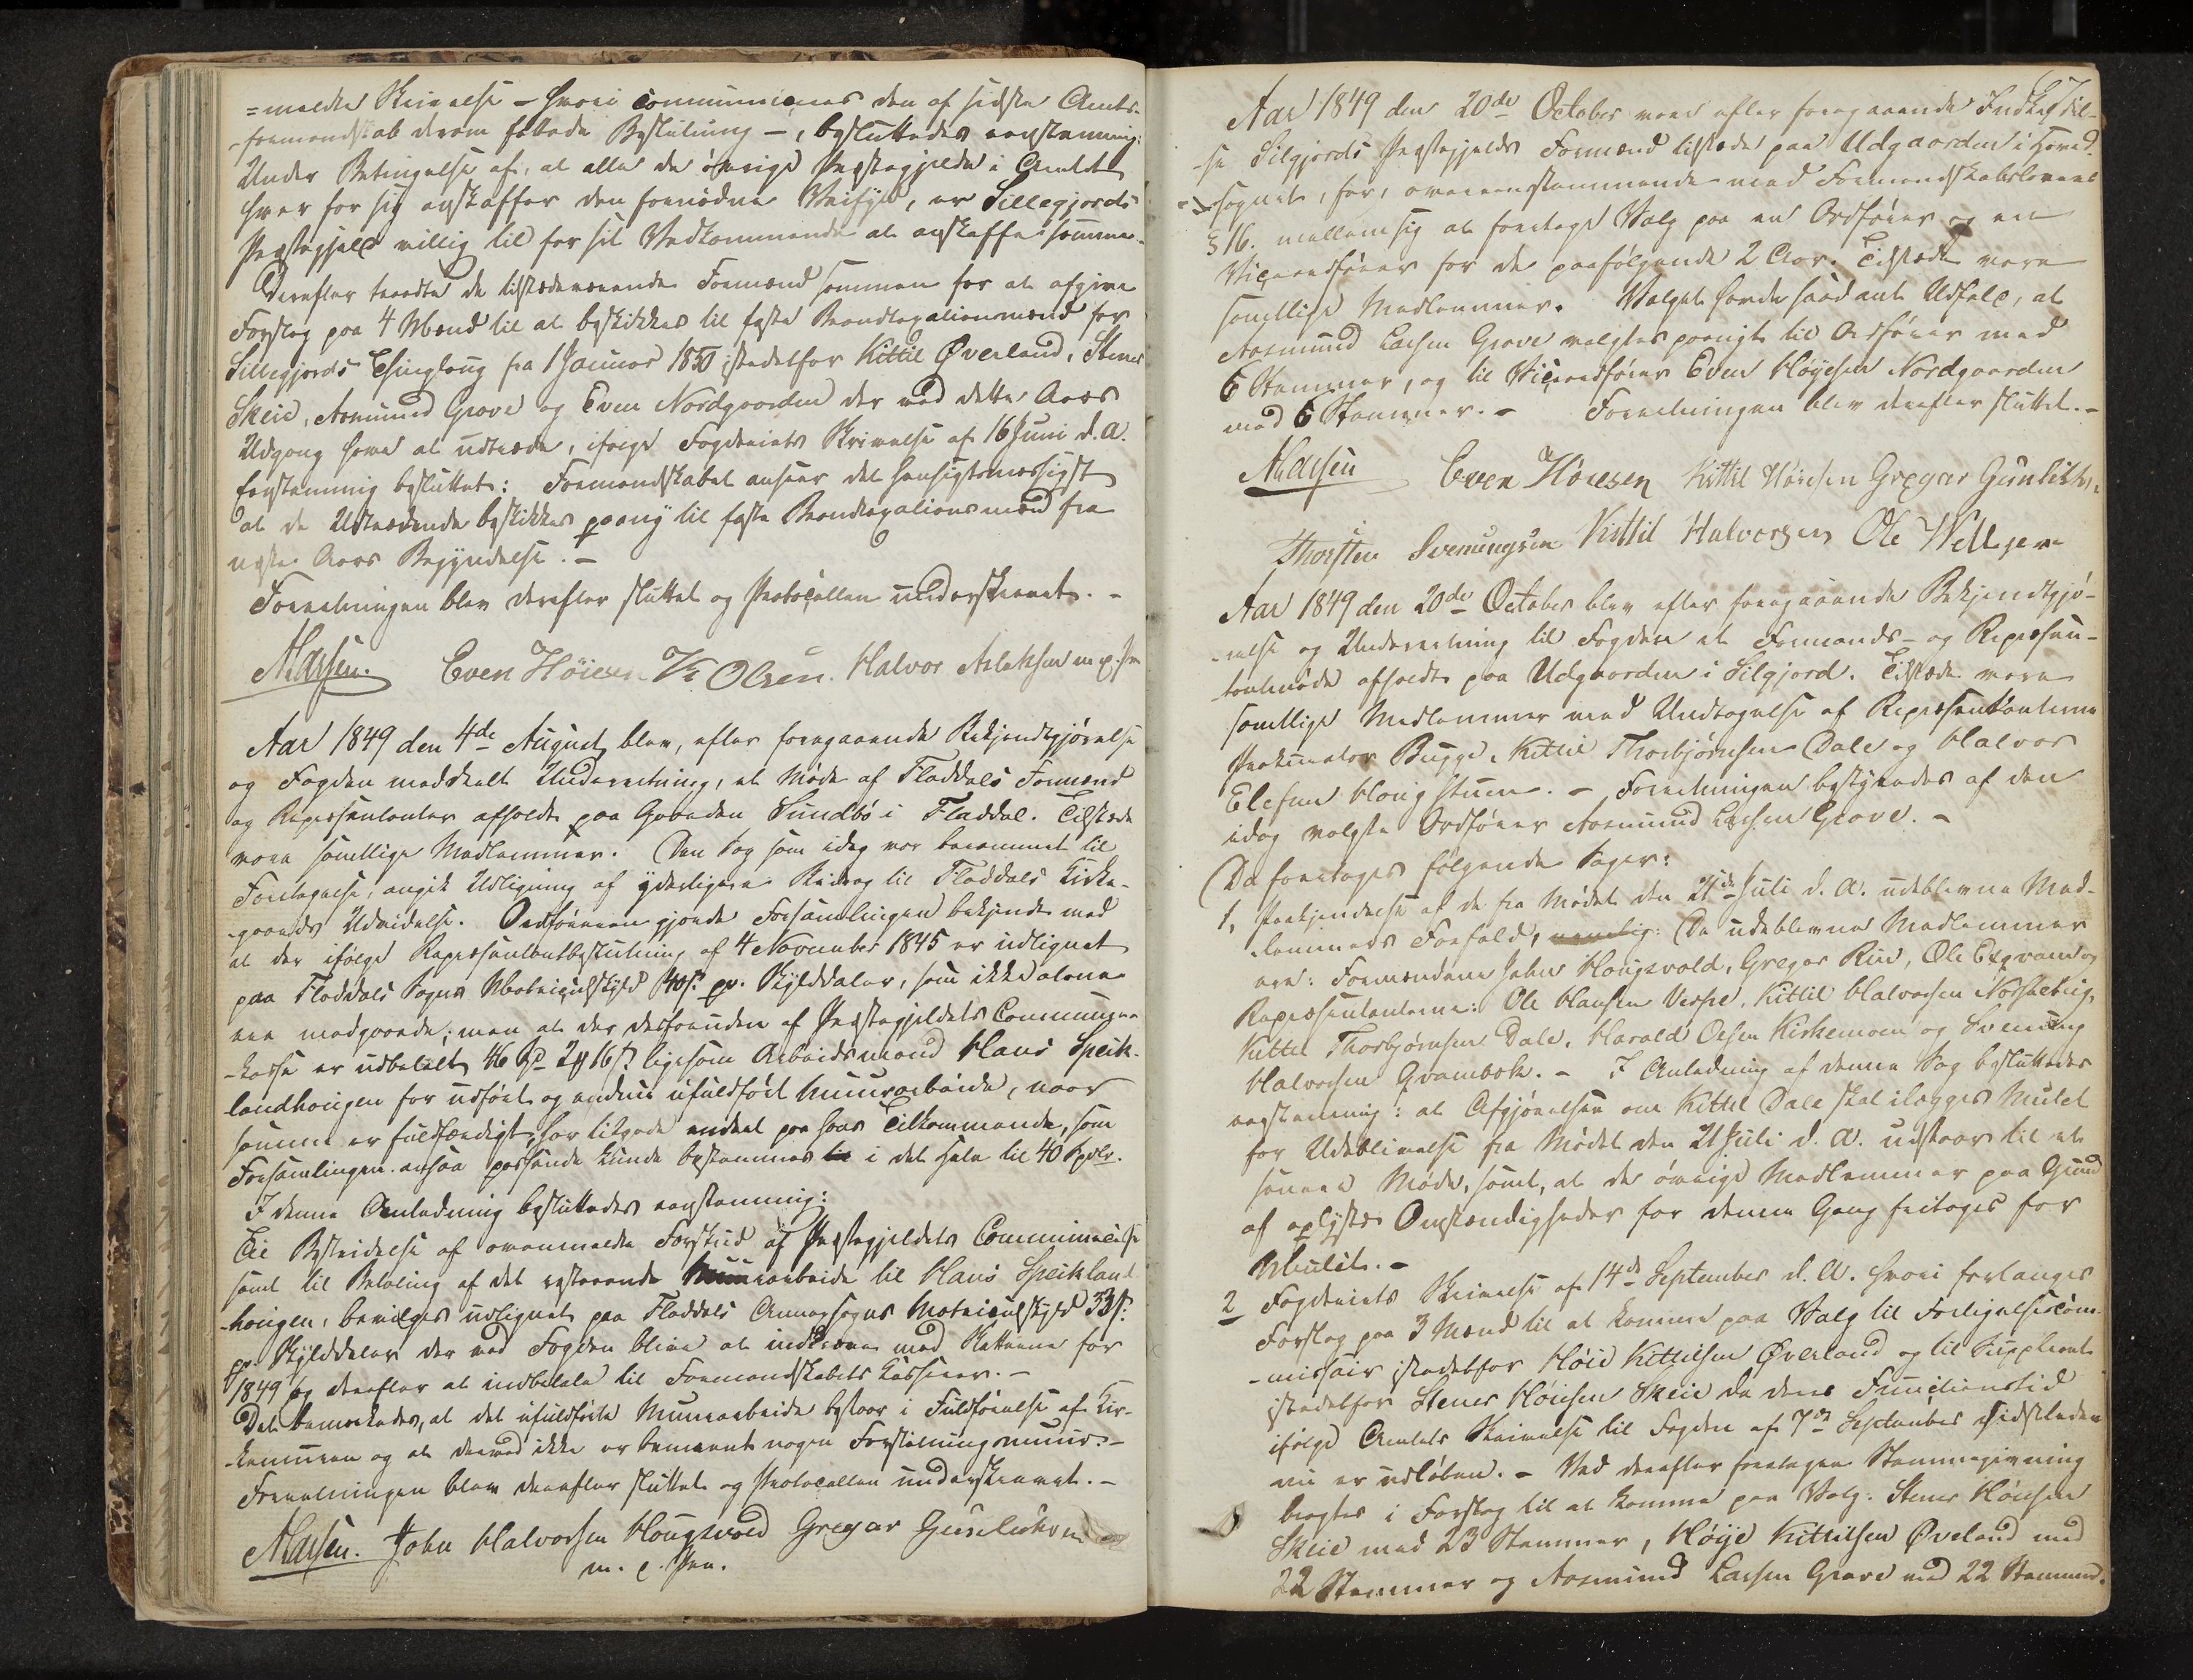 =meldte Skrivelse – hvori communiceres den af sidste Amts-
-formandskab derom fattede Beslutning –, besluttedes eenstemmig:
Under Betingelse af, at alle de øvrige Præstegjelde i Amtet
hver for sig anskaffer den fornødne Veifyld, er Sillegjords
Præstegjeld villig til for sit Vedkommende at anskaffe samme.
Derefter traadte de tilstedeværende Formænd sammen for at afgive
Forslag paa 4 Mænd til at beskikkes til faste Branntaxationsmænd for
Sillegjords Thinglaug fra 1 Januar 1850 istedetfor Kittil Øverland, Stener
Skeie, Aasmund Grave og Even Nordgaarden der ved dette Aars
Udgang have at udtræde, ifølge Fogderiets Skrivelse af 16 Juni d. A.
Eenstemmig besluttet: Formandskabet anseer det hensigtsmæssigst
at de Udtrædende beskikkes paany til faste Branntaxationsmænd fra
næste Aars Begyndelse. –
Forretningen blev derefter sluttet og Protocollen underskrevet. –
ALarsen. Even Høiesen K Olsen. Halvor Aslaksen m. p. Pen
Aar 1849 den 4de August blev, efter foregaaende Bekjendtgjørelse
og Fogden meddeelt Underretning, et Møde af Fladdals Formænd
og Repræsentanter afholdt paa Gaarden Sundbø i Fladdal. Tilstede
vare samtlige Medlemmer. Den Sag som idag var berammet til
Foretagelse, angik Udligning af yderligere Bidrag til Fladdals Kirke-
-gaards Udvidelse. Ordføreren gjorde Forsamlingen bekjendt med
at der ifølge Repræsentantbeslutning af 4 November 1845 er udlignet
paa Fladdals Sogns Matriculskyld 40 s. pr. Skylddaler, som ikke alene
ere medgaaede; men at der desforuden af Præstegjeldets Commune-
-kasse er udbetalt 46 Spd 2 16 s. ligesom Arbeidsmand Hans Speik-
landhougen for udført og endnu ufuldført Muurarbeide, naar
samme er fuldfærdigt, har tilgode endeel paa hans Tilkommende, som
Forsamlingen ansaa passende kunde bestemmes i det Hele til 40 Spdlr.
I denne Anledning besluttedes eenstemmig:
Til Bestridelse af ovenmeldte Forskud af Præstegjeldets Communekasse
samt til Betaling af det resterende Muurarbeide til Hans Speikland-
-hougen, bevilges udlignet paa Fladdals Annexsogns Matriculskyld 33 s.
pr. Skylddaler der ved Fogden blive at indkræve med Skatterne for
1849 og derefter at indbetale til Formandskabets Kasserer. –
Det bemærkedes, at det ufuldførte Muurarbeide bestaar i Fuldførelse af Kir-
-kemuren og at derved ikke er bemeent nogen Forstøtningsmuur. –
Forretningen blev derefter sluttet og Protocollen underskrevet. –
ALarsen. John Halvorsen Hougsvold Gregar Gunlichsen
m. p. Pen.
67
Aar 1849 den 20de October vare efter foregaaende Indkaldel-
-se Silgjords Præstegjelds Formænd tilstede paa Udgaarden i Hoved-
-sognet, for, overeensstemmende med Formandskabslovens
§ 16. mellem sig at foretage Valg paa en Ordfører og en
Viceordfører for de paafølgende 2 Aar. Tilstede vare
samtlige Medlemmer. Valget havde saadant Udfald, at
Aasmund Larsen Grave valgtes paanyt til Ordfører med
6 Stemmer, og til Viceordfører Even Høyesen Nordgaarden
med 6 Stemmer. – Forretningen blev derefter sluttet. –
ALarsen Even Høiesen Kittil Høiesen Gregar Gunlikse.
Thorsten Svenungsen Kittil Halvorsen Ole
Aar 1849 den 20de October blev efter foregaaende Bekjendtgjø-
-relse og Underretning til Fogden et Formands- og Repræsen-
tantmøde afholdt paa Udgaarden i Silgjord. Tilstede vare
samtlige Medlemmer med Undtagelse af Repræsentanterne
Prokurator Bugge, Kittil Thorbjørnsen Dale og Halvor
Olesen Hougstuen. – Forretningen bestyredes af den
idag valgte Ordfører Aasmund Larsen Grave. –
Da foretoges følgende Sager:
1, Paakjendelse af de fra Mødet den 21de Juli d. A. udeblevne Med-
lemmers Forfald, nemlig: De udeblevne Medlemmer
ere: Formændene John Hougsvold, Gregar Rui, Ole Exqram og
Repræsentanterne: Ole Hansen Versre, Kittil Halvorsen Norstebrg,
Kittil Thorbjørnsen Dale, Harald Olsen Kirkemoen og Svenung
Halvorsen Qvambek. – I Anledning af denne Sag besluttedes
eenstemmig: at Afgjørelsen om Kittil Dale skal ilægges Mulct
for Udeblivelse fra Mødet den 21 Juli d. A. udstaar til et
senere Møde, samt, at de øvrige Medlemmer paa Grund
af oplyste Omstændigheder for denne Gang fritages for
Mulct. –
2 Fogderiets Skrivelse af 14de September d. A. hvori forlanges
Forslag paa 3 Mænd til at komme paa Valg til Forligelsescom-
-missair istedetfor Høie Kittilsen Øverland og til Suppleant
istedetfor Stener Høiesen Skeie da deres Functionstid
ifølge Amtets Skrivelse til Fogden af 7de September sidstleden
nu er udløben. – Ved derefter foretagen Stemmegivning
bragtes i Forslag til at komme paa Valg: Stener Høiesen
Skeie med 23 Stemmer, Høye Kittilsen Øveland med
22 Stemmer og Aasmund Larsen Grave med 22 Stemmer.